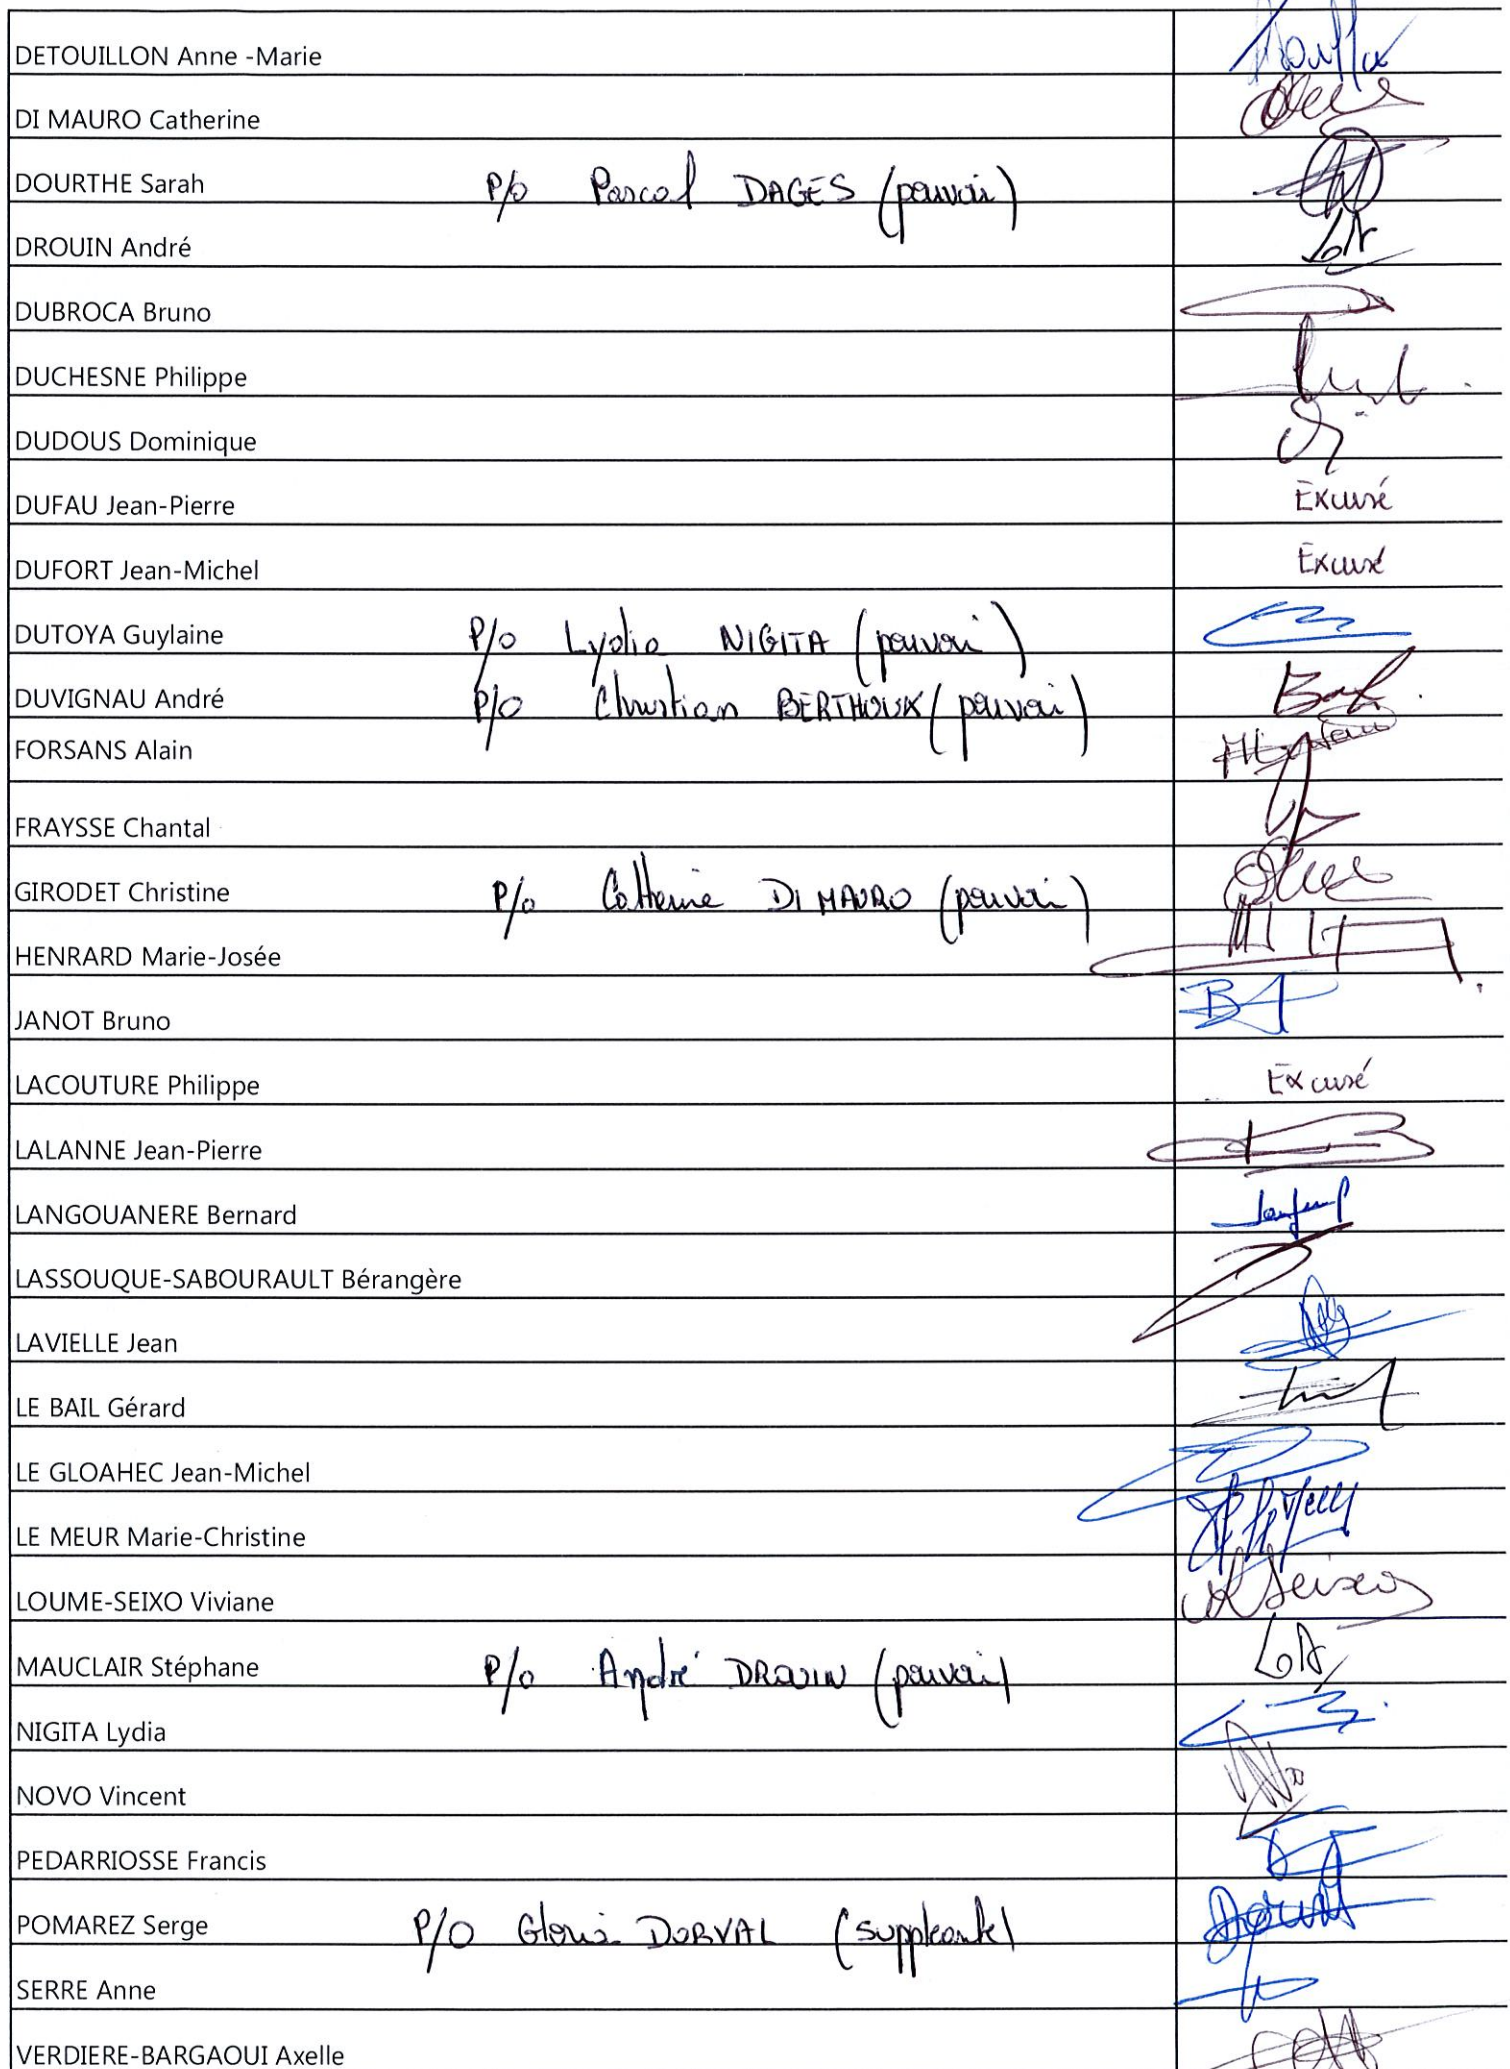 DETOUILLON Anne -Marie
DI MAURO Catherine
DOURTHE Sarah P/o Pascal DAGES (pouvoir)
DROUIN André
DUBROCA Bruno
DUCHESNE Philippe
DUDOUS Dominique
DUFAU Jean-Pierre Excusé
DUFORT Jean-Michel Excusé
DUTOYA Guylaine P/o Lydia NIGITA (pouvoir)
DUVIGNAU André P/o Christian BERTHOUX (pouvoir)
FORSANS Alain
FRAYSSE Chantal
GIRODET Christine P/o Catherine DI MAURO (pouvoir)
HENRARD Marie-Josée
JANOT Bruno
LACOUTURE Philippe Excusé
LALANNE Jean-Pierre
LANGOUANERE Bernard
LASSOUQUE-SABOURAULT Bérangère
LAVIELLE Jean
LE BAIL Gérard
LE GLOAHEC Jean-Michel
LE MEUR Marie-Christine
LOUME-SEIXO Viviane
MAUCLAIR Stéphane P/o André DROUIN (pouvoir)
NIGITA Lydia
NOVO Vincent
PEDARRIOSSE Francis
POMAREZ Serge P/O Gloria DORVAL (suppléante)
SERRE Anne
VERDIERE-BARGAOUI Axelle